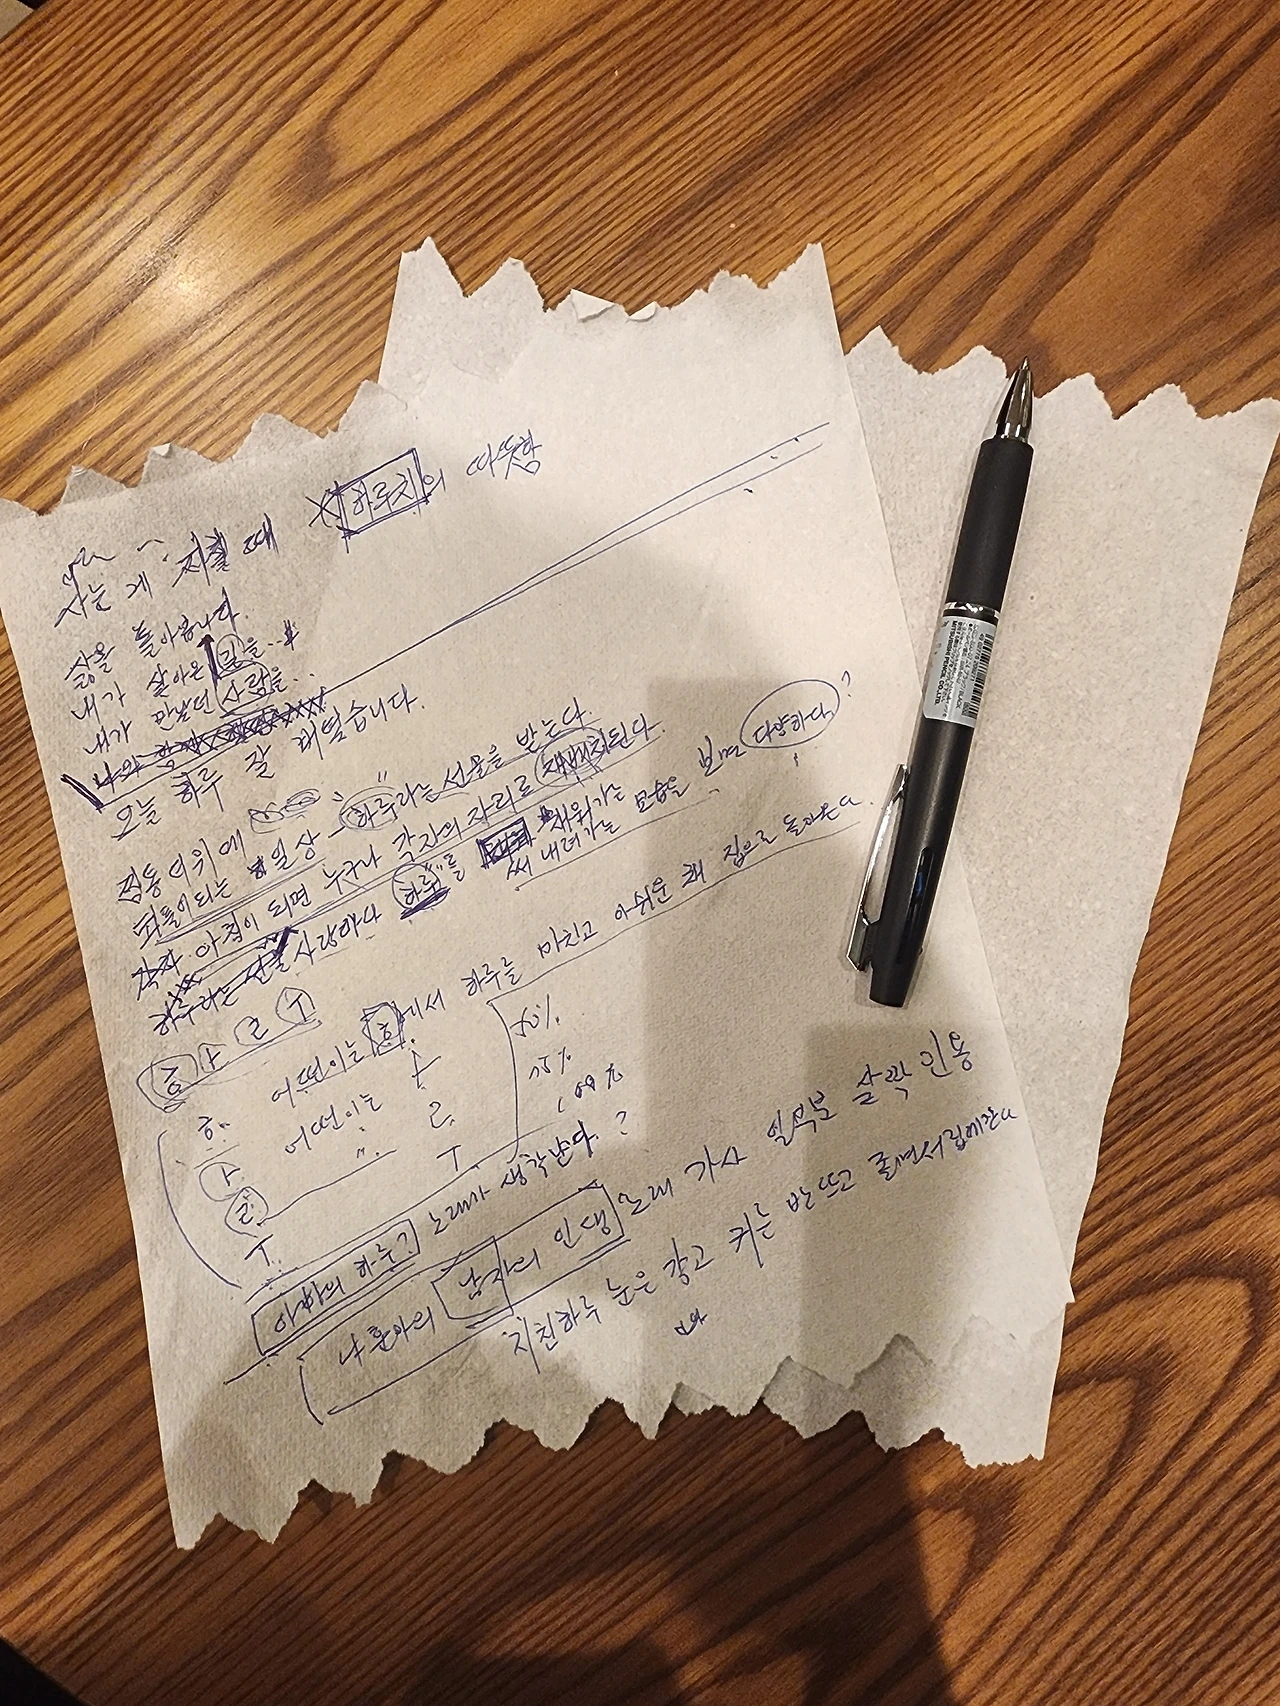 하루치의 따뜻함
사는 게 지칠 때
삶을 돌아봅니다.
내가 살아온 길을...
내가 만났던 사람을...
오늘 하루 잘 견뎠습니다.
점등 더위에
되풀이 되는 일상 - "하루"라는 선물을 받는다.
각자 아침이 되면 누구나 각자의 자리로 재배치된다.
하루라는 선물 사람마다 "하루"를 채워가는
써 내려가는 모습을 보면 다양하다. ?
흥 ㅏ ㄹ ㅜ
어떤이는 ㅎ에서 하루를 마치고 아쉬운 채 집으로 돌아온다.
ㅎ.. 어떤이는 ㅏ 50%
ㅏ 〃 ㄹ 75%
ㄹ ㅜ 100%
ㅜ
아빠의 하루? 노래가 생각난다. ?
나훈아의 남자의 인생 노래 가사 일부분 살짝 인용
지친하루 눈은 감고 귀는 반 뜨고 졸면서 집에간다
MITSUBISHI PENCIL CO.,LTD.